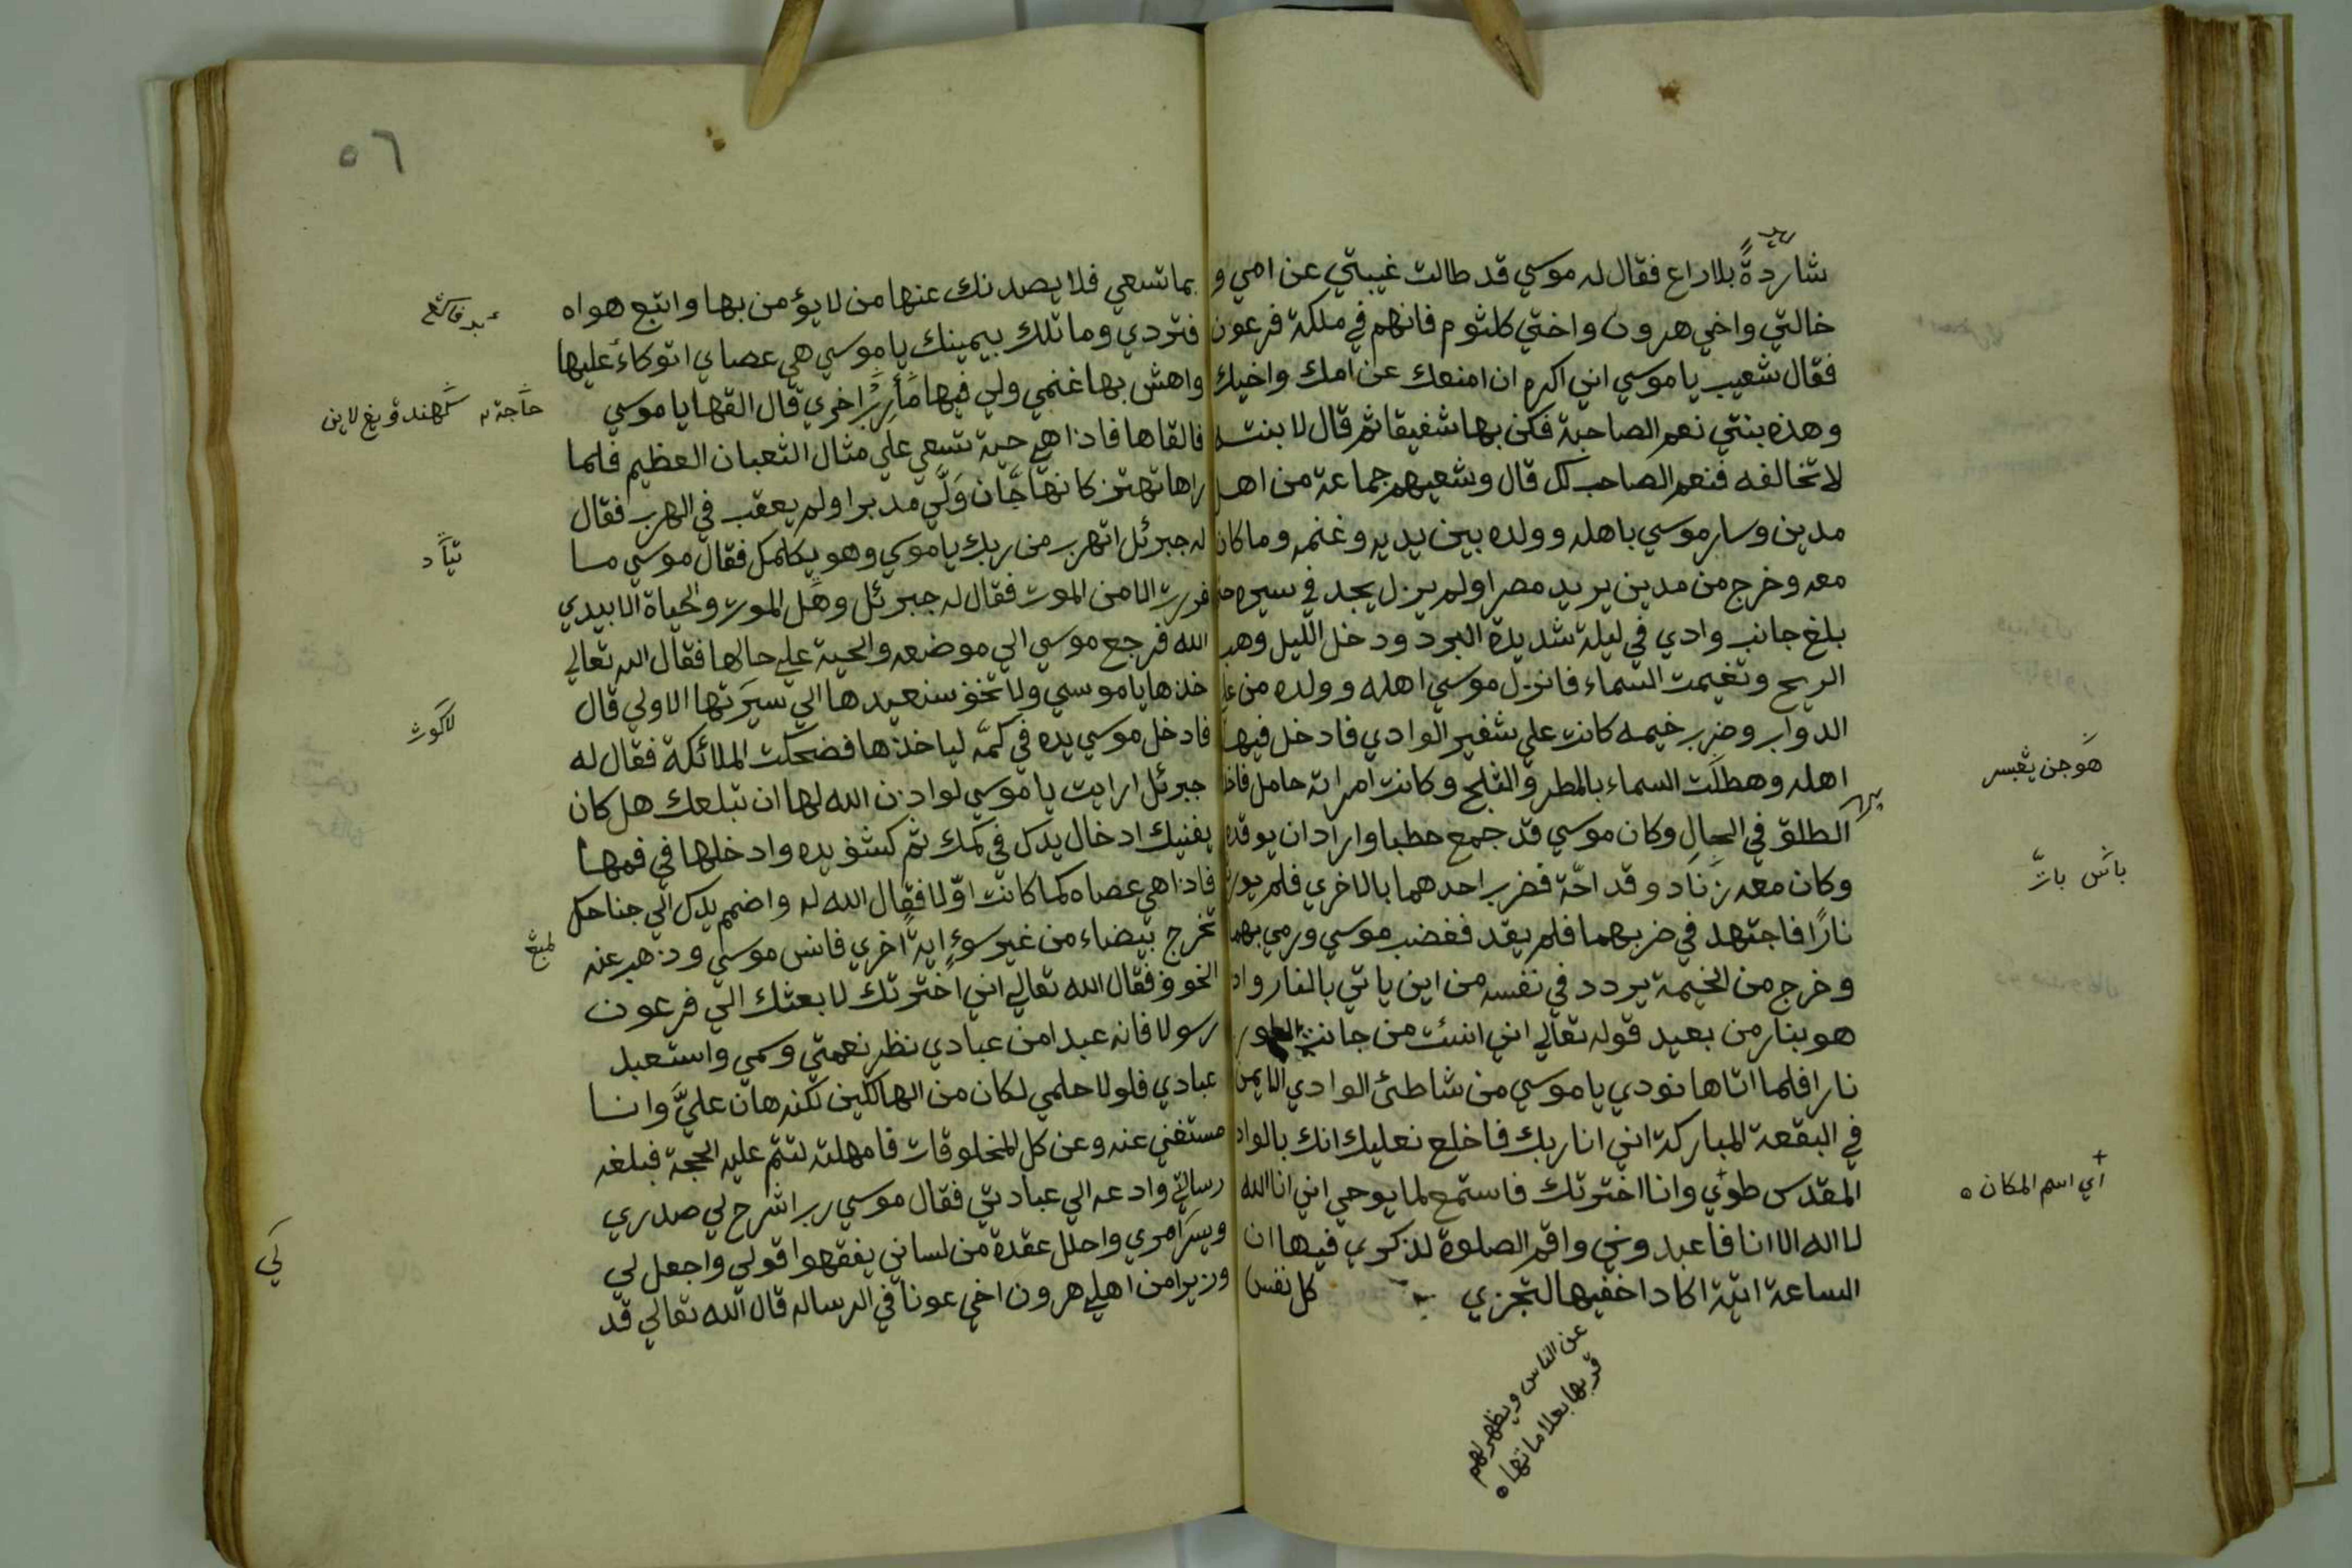 شاردةً بلا راع فقال له موسي قد طالت غيبتي عن امي و
خالتي واخي هرون واختي كلثوم فانهم في ملكة فرعون
فقال شعيب يا موسي اني اكره ان امنعك عن امك واخيك
وهذه بنتي نعم الصاحبة فكن بها شفيقا ثم قال لابنته
لا تخالفه فنعم الصاحب لك قال وشعيهم جماعة من اهل
مدين وسار موسي باهله وولده بين يديه وغنمه وما كان
معه وخرج من مدين يريد مصرا ولم يزل يجد في سيره حتي
بلغ جانب وادي في ليلة شديدة البرد ودخل الليل وهب
الريح وتغيمت السماء فانزل موسي اهله وولده من علي
الدواب وضرب خيمه كانت علي شفير الوادي فادخل فيها
اهله وهطلت السماء بالمطر والثلج وكانت امراته حامل فاخذ
الطلق في الحال وكان موسي قد جمع حطبا واراد ان يوقده
وكان معه زناد وقداحّة فضرب احدهما بالاخري فلم يور
نارًا فاجتهد في ضربهما فلم يقد فغضب موسي ورمي بهما
وخرج من الخيمة يردد في نفسه من اين ياتي بالنار واذ
هو بنار من بعيد قوله تعالي اني انست من جانب الطور
نارا فلما اتاها نودي يا موسي من شاطئ الوادي الايمن
في البقعة المباركة اني انا ربك فاخلع نعليك انك بالواد
المقدس طوي وانا اخترتك فاستمع لما يوحي اني انا الله
لا اله الا انا فاعبدوني واقم الصلوة لذكري فيها ان
الساعة اتية اكاد اخفيها لتجزي كل نفس
عن الناس ويظهر لهم
قربها بعلاماتها ٥
هوجن
باتس بات
أي اسم المكان ٥
٥٦
بما تسعي فلا يصدنك عنها من لا يؤمن بها واتبع هواه
فتردي وما تلك بيمينك يا موسي هي عصاي اتوكاء عليها
واهش بها غنمي ولي فيها مأرب اخري قال القها يا موسي
فالقاها فاذا هي حية تسعي علي مثال الثعبان العظيم فلما
راها تهتز كانها جَّان وَلّي مدبرا ولم يعقب في الهرب فقال
له جبرئل اتهرب من ربك يا موسي وهو يكلمك فقال موسي ما
فررت الا من الموت فقال له جبرئل وهل الموت والحياة الا بيدي
الله فرجع موسي الي موضعه والحية علي حالها فقال الله تعالي
خذها يا موسي ولا تخف سنعيدها الي سيرتها الاولي قال
فادخل موسي يده في كمّه لياخذها فضحكت الملائكة فقال له
جبرئل ارايت يا موسي لو اذن الله لها ان تبلعك هل كان
يغنيك ادخال يدك في كمك ثم كشف يده وادخلها في فمها
فاذا هي عصاه كما كانت اوّلا فقال الله له واضمم يدك الي جناحك
تخرج بيضاء من غير سوءٍ ايةً اخري فانس موسي وذهب عنه
الخوف فقال الله تعالي اني اخترتك لابعثك الي فرعون
رسولا فانه عبدا من عبادي نظر نعمتي وسمي واستعبد
عبادي فلولا حلمي لكان من الهالكين لكنه هان عليَّ وانا
مستغني عنه وعن كل المخلوقات فامهلته لتتم عليه الحجة فبلغه
رسالتي وادعه الي عبادتي فقال موسي رب اشرح لي صدري
ويسر امري واحلل عقدة من لساني يفقهوا قولي واجعل لي
وزيرا من اهلي هرون اخي عونا في الرساله قال الله تعالي قد
حاجة
تياد
لاكوت
كي